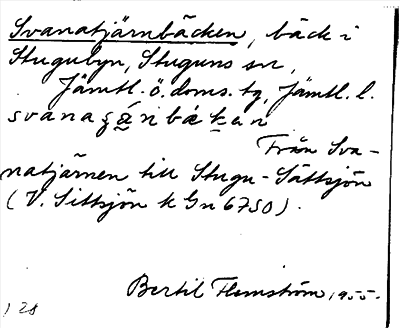 Svanatjärnbäcken, bäck i
Stugubyn, Stuguns sn,
Jämtl. ö. doms. tg, Jämtl. l.
Från Sva-
natjärnen till Stugu-Sittsjön
(V. Sittsjön k Gn 6750).
Bertil Flemström, 1955.
128